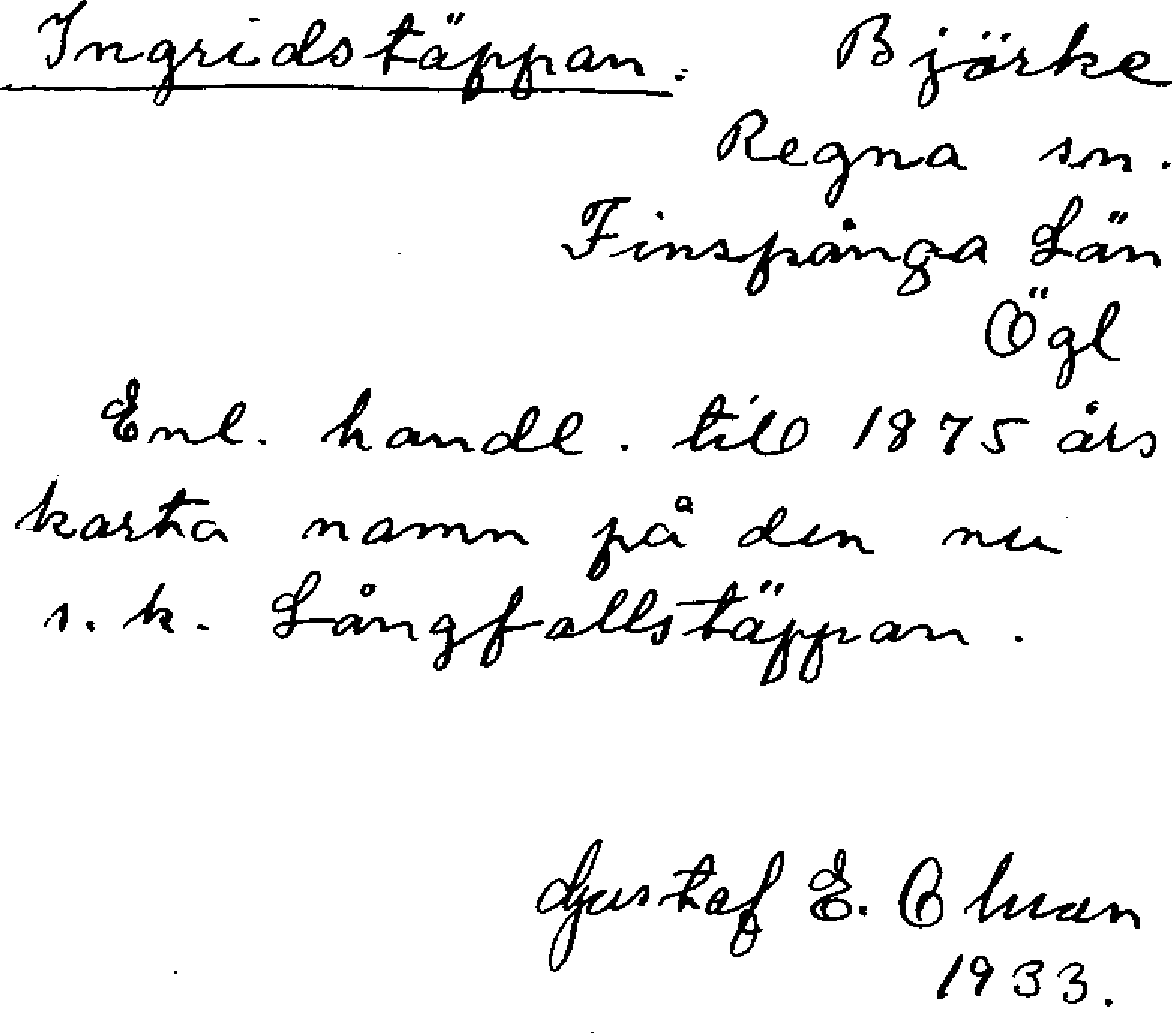 Ingridstäppan. Björke
Regna sn.
Finspånga Län
Ögl
Enl. handl. till 1875 års
karta namn på den nu
s. k. Långfallstäppan.
Gustaf E.
1933.